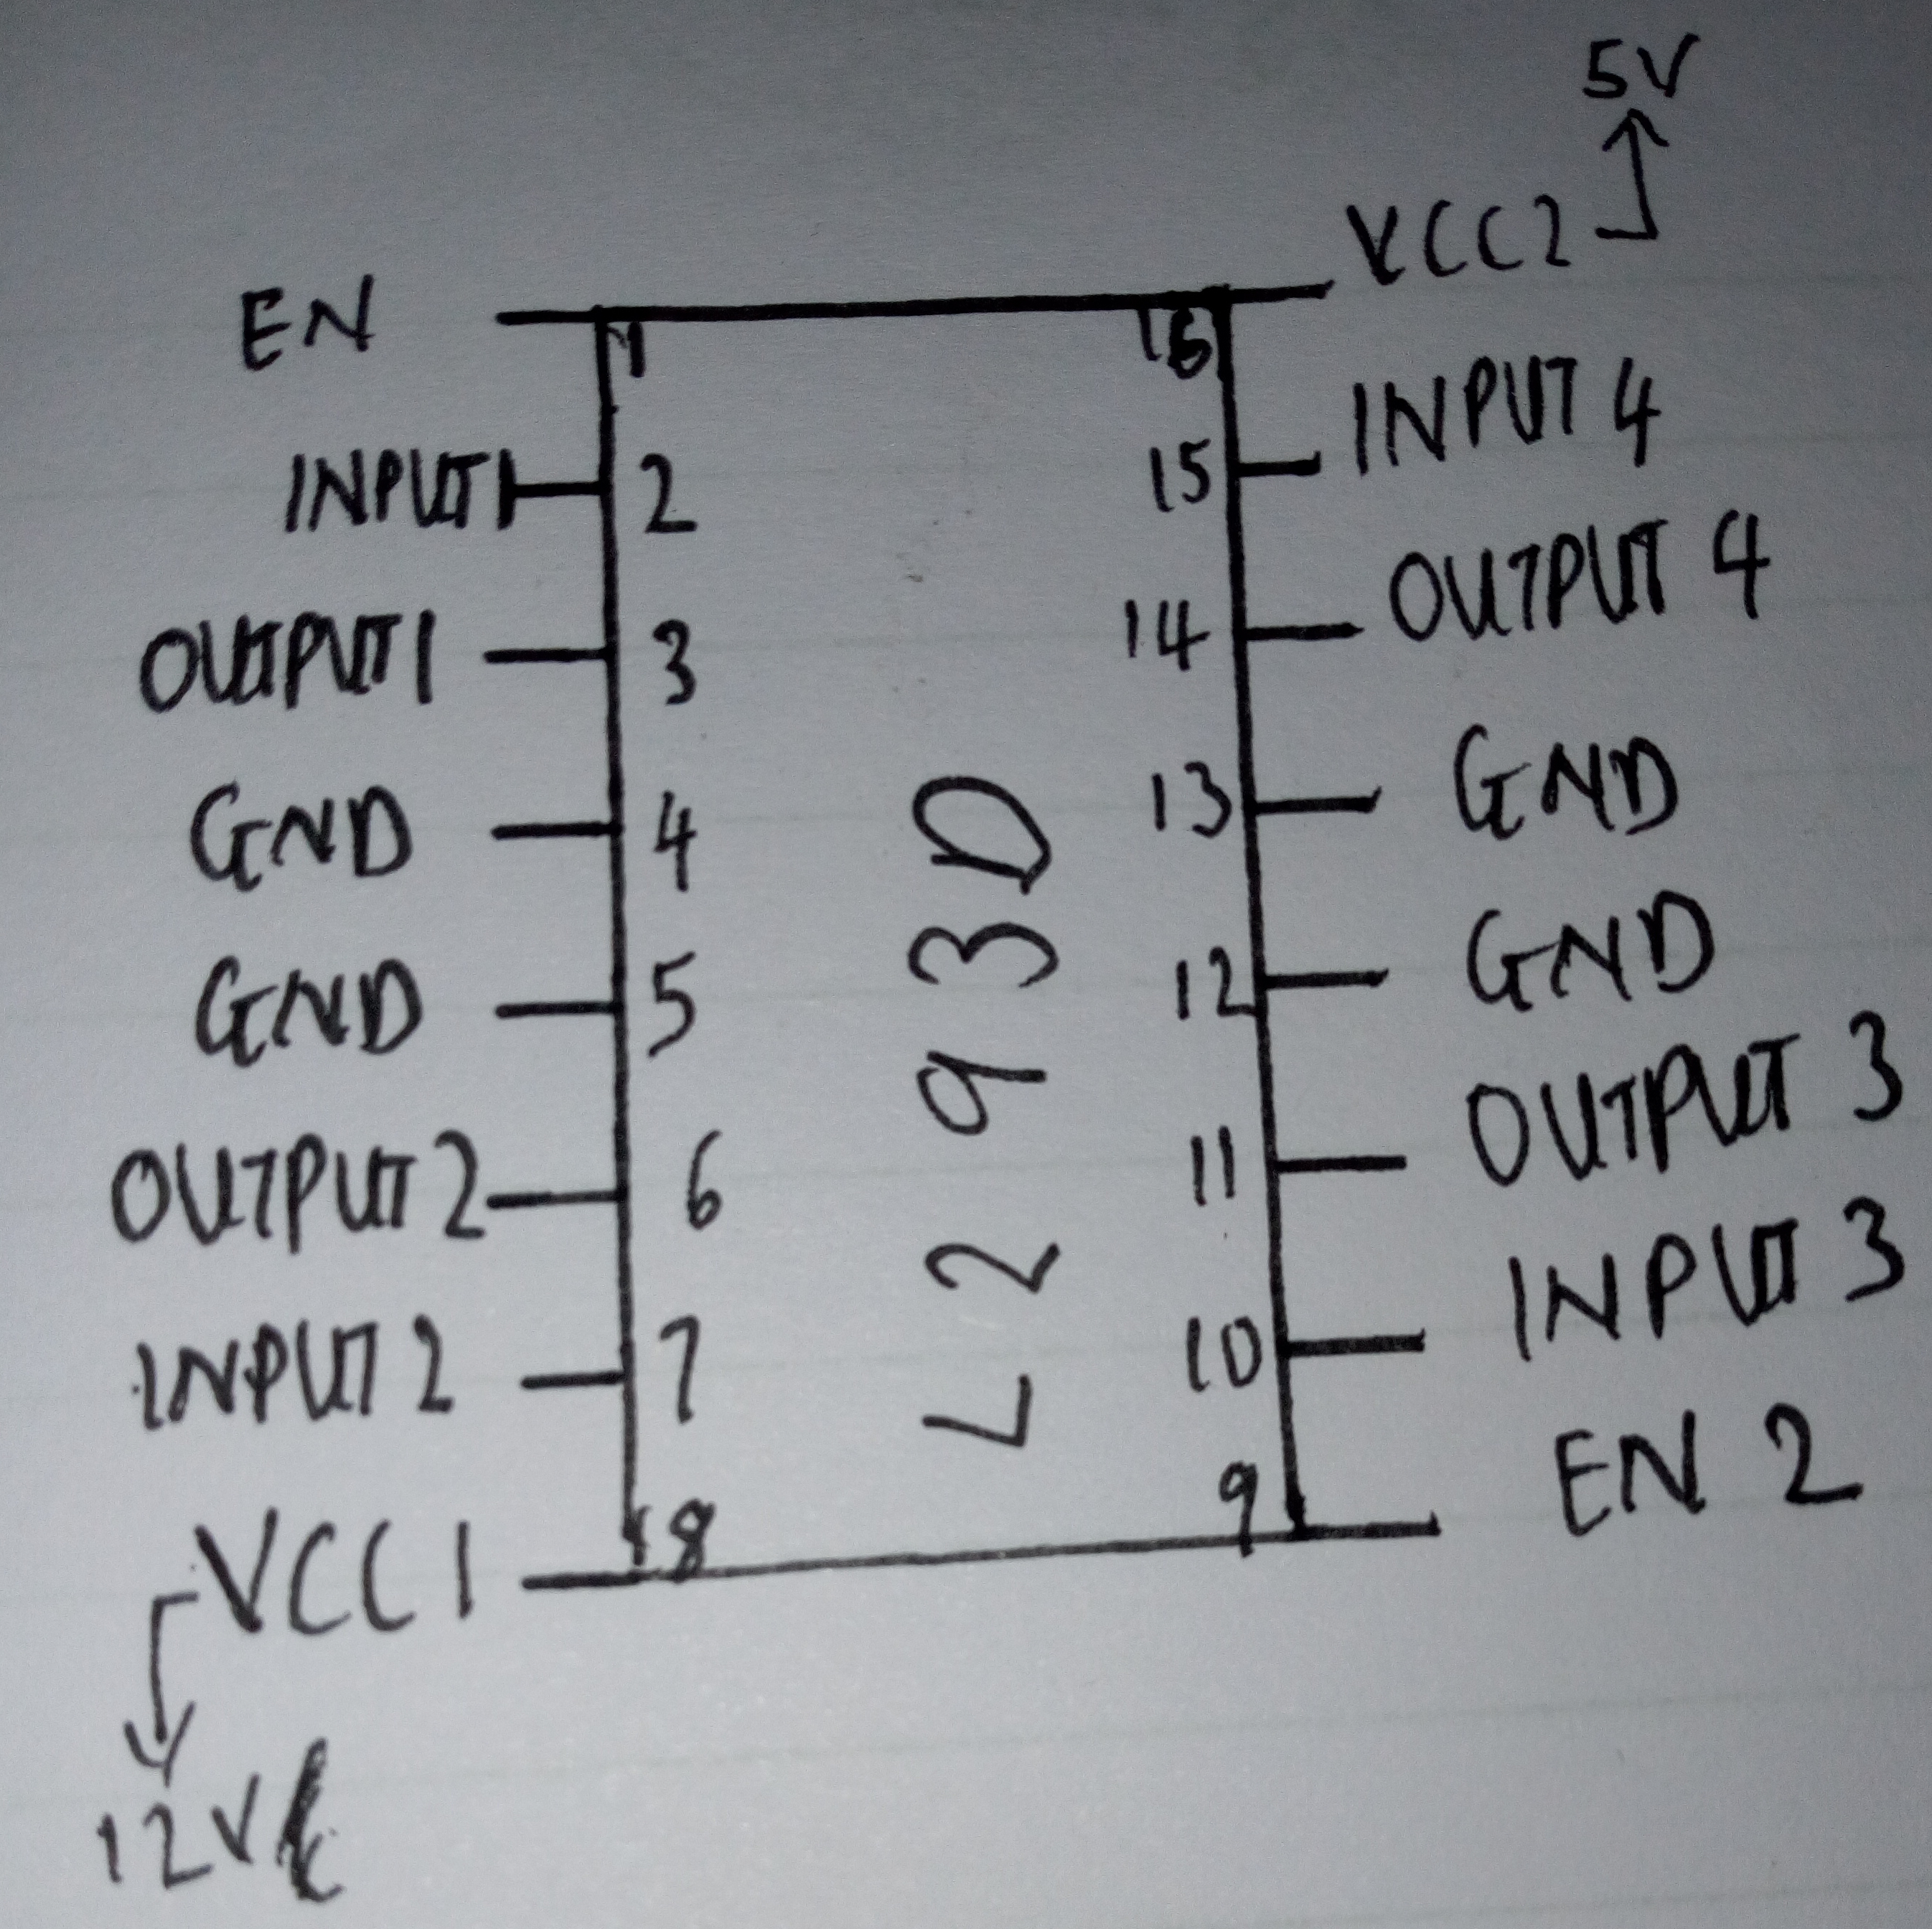 5V
VCC2
EN
1
16
INPUT 4
INPUT1
2
15
OUTPUT 4
OUTPUT1
3
14
GND
4
13
GND
GND
5
12
GND
OUTPUT 2
6
11
OUTPUT 3
INPUT 2
7
10
INPUT 3
VCC1
8
9
EN 2
L293D
12V